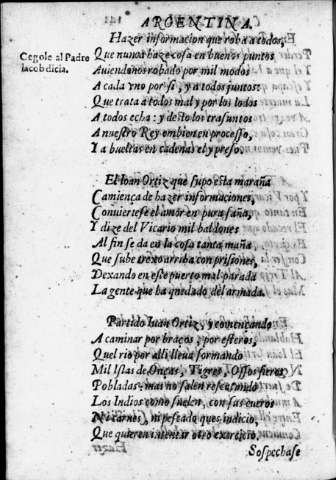 ARGENTINA.
Hazer informacion que roba a todos,
Cegole al Padre
la cobdicia.
Que nunca haze cosa en buenos puntos
Auiendonos robado por mil modos
A cada vno por si, y a todos juntos:
Que trata a todos mal y por los lodos
A todos echa: y desto los trasuntos
A nuestro Rey embien en processo,
Y a bueltas en cadenas el y preso.
El Ioan Ortiz que supo esta maraña
Comiença de hazer informaciones,
Conuiertese el amor en pura saña,
Y dize del Vicario mil baldones
Al fin se da en la cosa tanta maña,
Que sube arriba con prisiones,
Dexando en este puerto mal parada
La gente que ha quedado del armada.
Partido Iuan Ortiz, y començando
A caminar por braços, por esteros,
Quel rio por alli lleua formando
Mil Islas de Onças, Tigres, Ossos fieros
Pobladas: mas no salen rescatando
Los Indios como suelen, con sus cueros
Ni carnes, ni pescado ques indicio,
Que quieren intentar otro exercicio.
Sospechase